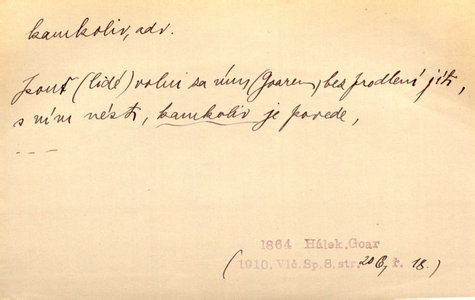 kamkoliv, adv.
Jsout (lidé) volni za ním (Goarem) bez prodlení jíti,
s ním nésti, kamkoliv je povede,
_ _ _
1864 Hálek, Goar
(1910. Vlč. Sp. 8, str. 206, ř. 18.)